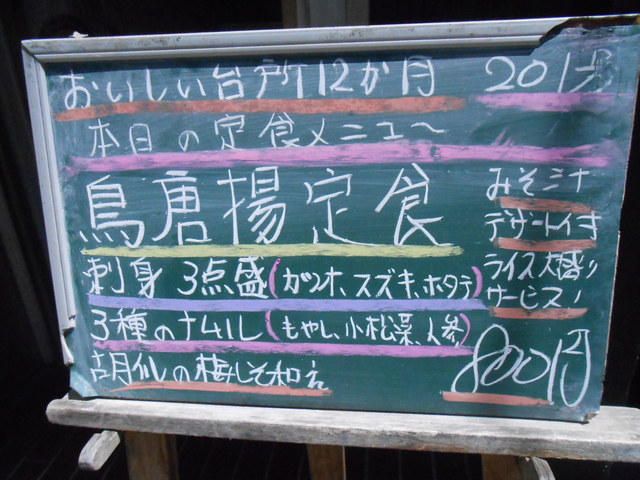 おいしい台所12か月
本日の定食メニュー
鳥唐揚定食
刺身 3点盛(カツオ、スズキ、ホタテ)
3種のナムル(もやし、小松菜、人参)
胡瓜の梅しそ和え
みそ汁
デザート付
ライス大盛り
サービス!
800円